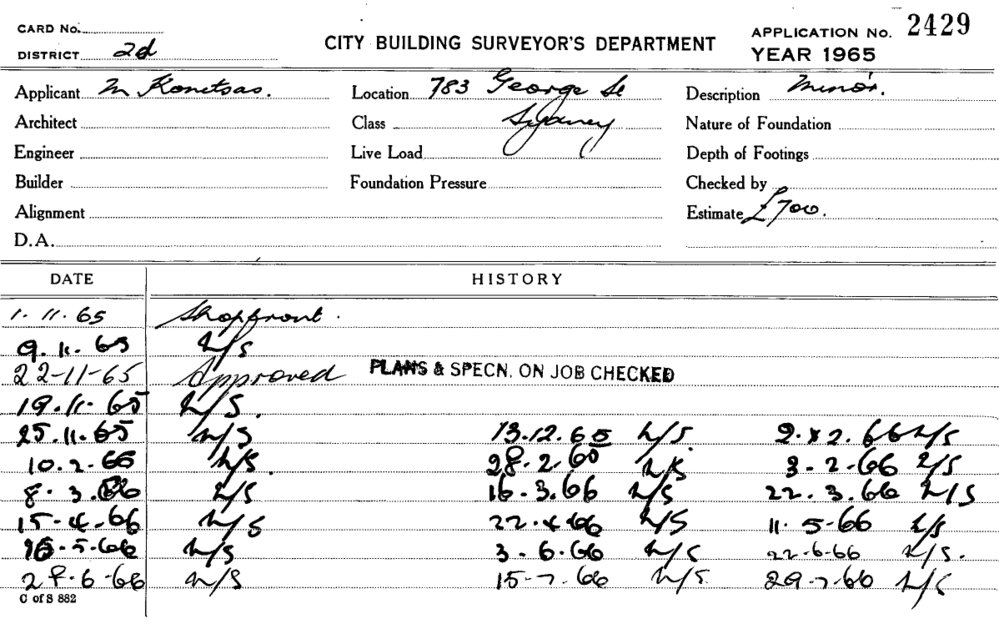 CARD No.
DISTRICT 2d
CITY BUILDING SURVEYOR'S DEPARTMENT
APPLICATION No. 2429
YEAR 1965
Applicant M Konetsas.
Location 783 George St
Description Minor.
Architect
Class Sydney
Nature of Foundation
Engineer
Live Load
Depth of Footings
Builder
Foundation Pressure
Checked by
Alignment
Estimate £700.
D.A.
DATE HISTORY
1. 11. 65 Shopfront.
9. 11. 65 N/S
22-11-65 Approved PLANS & SPECN. ON JOB CHECKED
19.11.65 N/S.
25.11.65 N/S 13.12.65 N/S. 66 N/S
10.2.66 N/S. 28.2. N/S 3-2-66 N/S
8.3.66 N/S 16-3.66 N/S 22.3.66 N/S
15-4-66 N/S 22.4.66 N/S 11.5-66 N/S
5-66 N/S 3-6-66 N/S 22-6-66 N/S.
28-6-66 N/S 15-7.66 N/S. 29-7-66 N/S
C of S 882